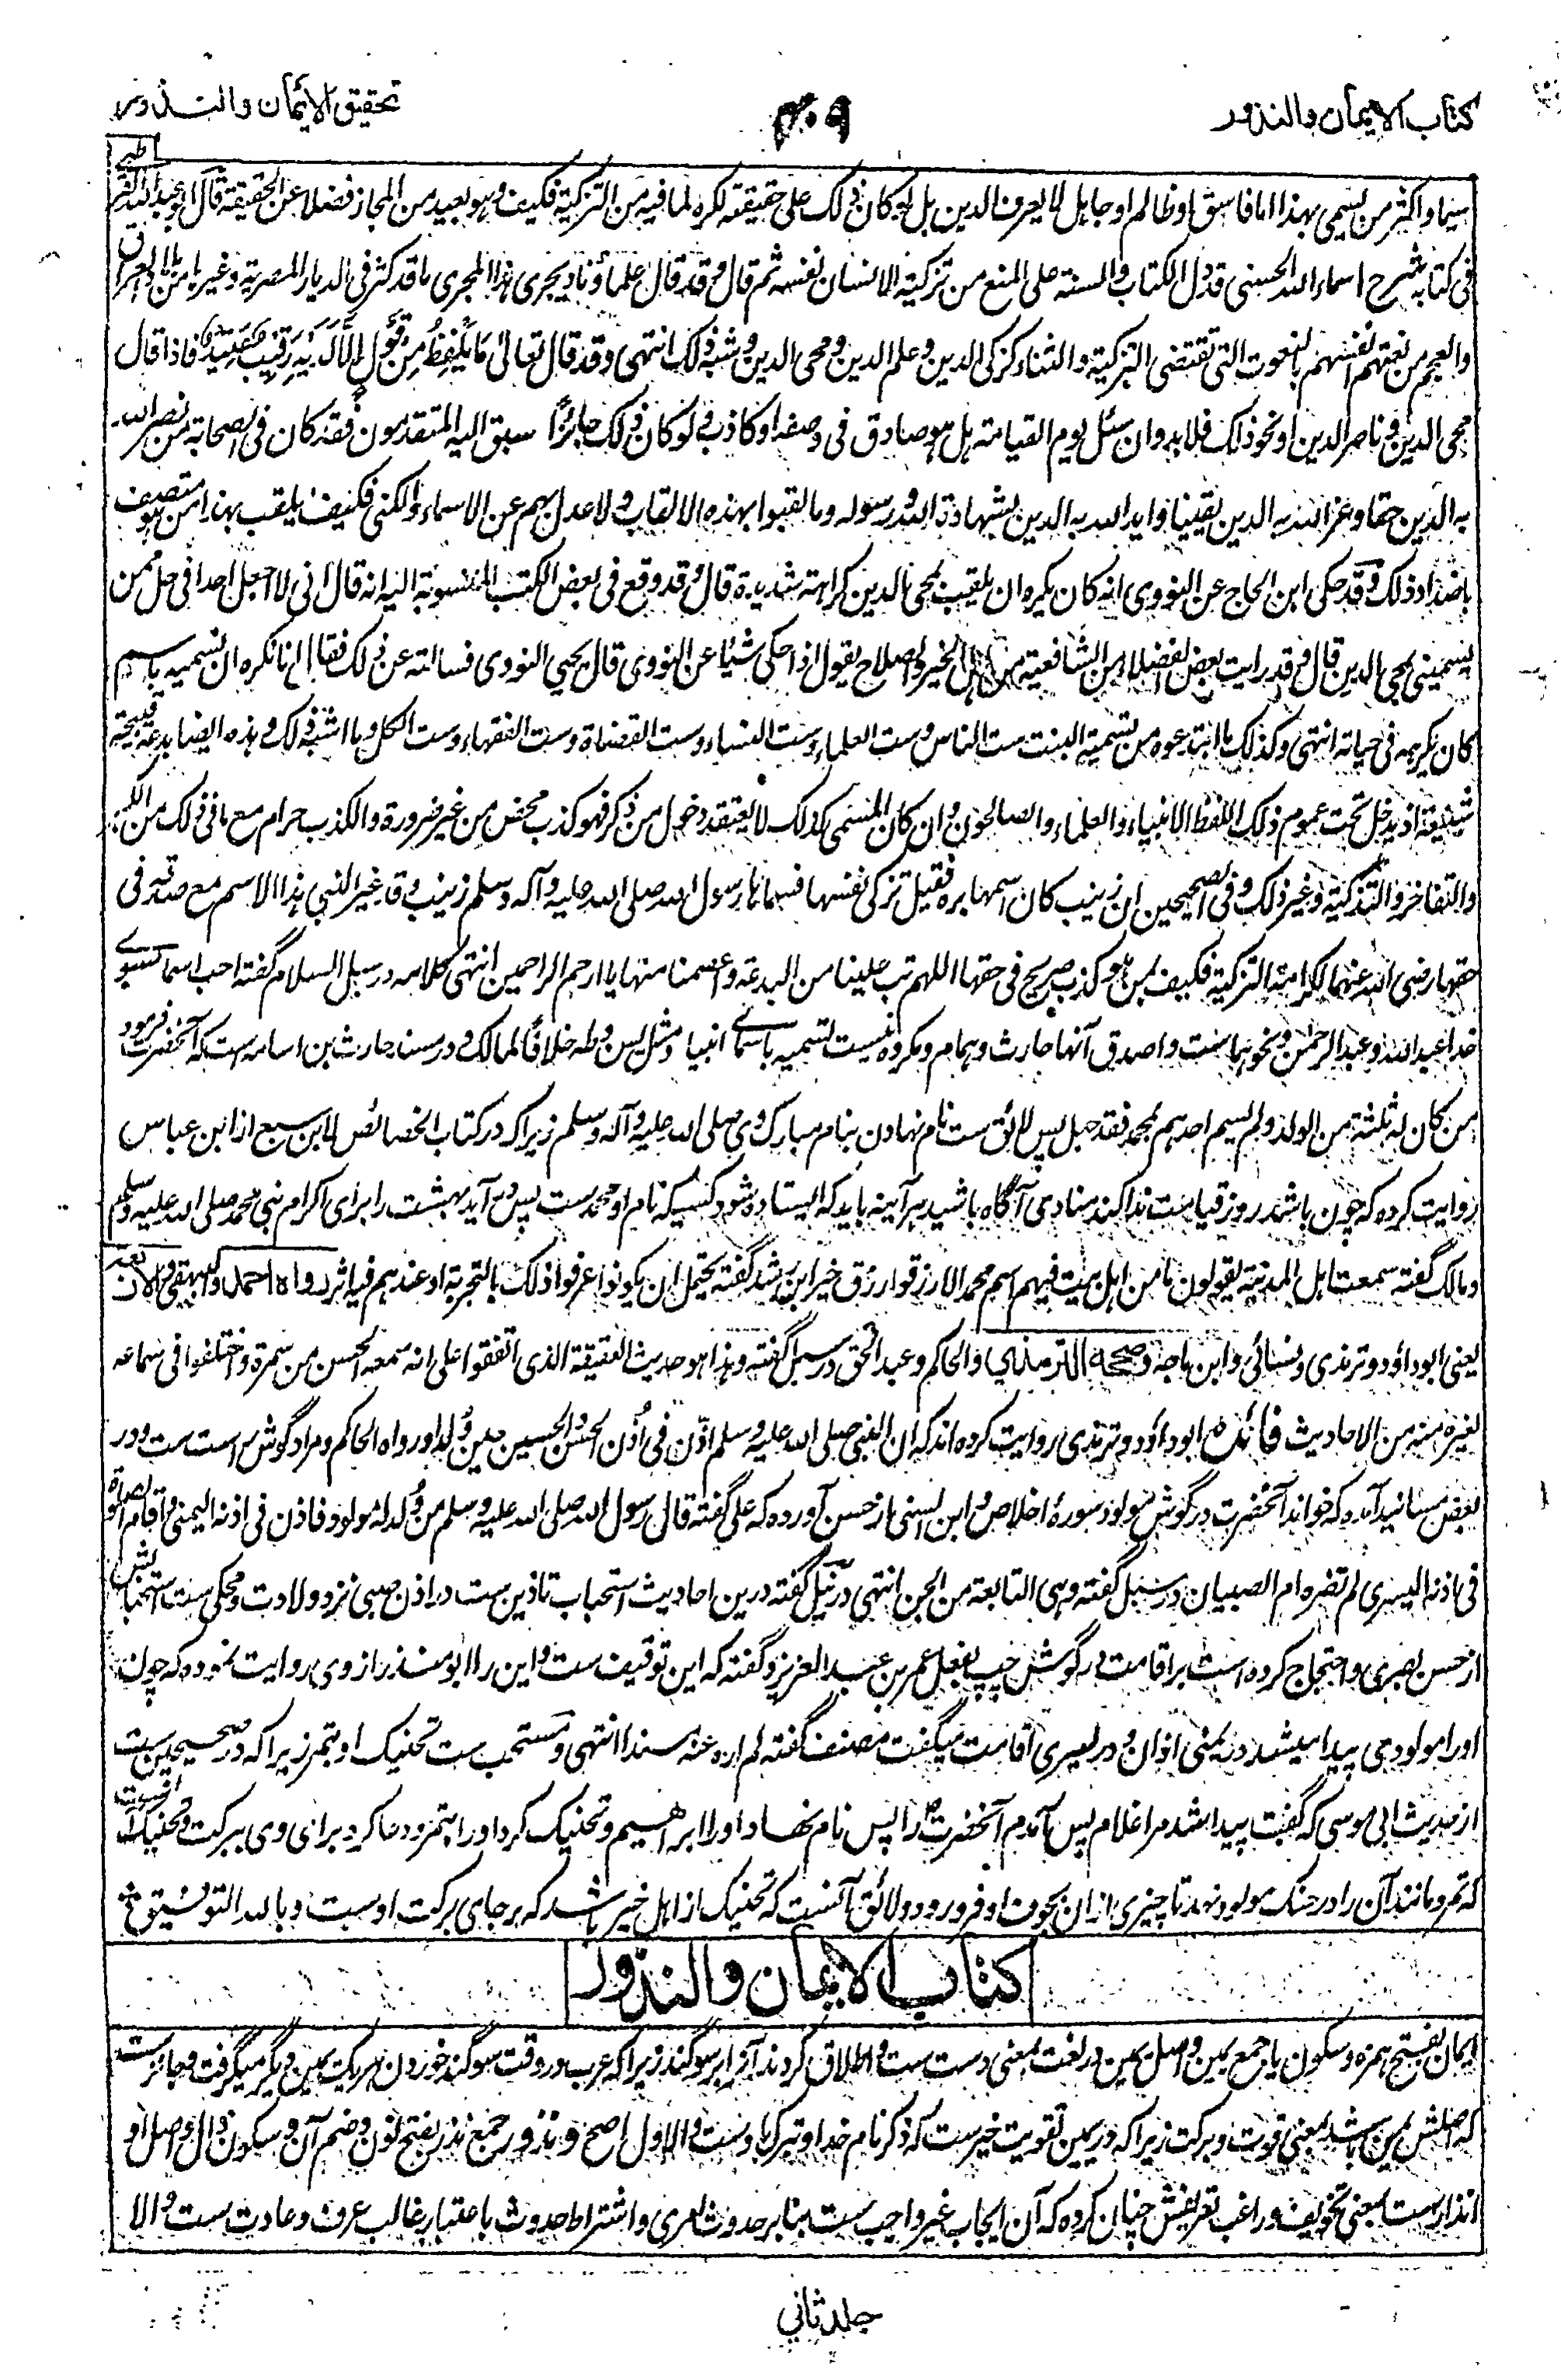 كتاب الايمان والنذور
۴۰۹
تحقيق الايمان والنذور
سيما واكثر من يسمى بهذا اما فاسق او ظالم او جاہل لا يعرف الدين بل لو كان ذلك على حقيقته لكره لما فيه من التزكية فكيف وہو بعيد من المجاز فضلا عن الحقيقة قال ابو عبد الله القرطبى
فى كتابه شرح اسماء الله الحسنى قد دل الكتاب والسنة على المنع من تزكية الانسان نفسه ثم قال وقد قال علماؤنا ويجرى ہذا المجرى ما قد كثر فى الديار المصرية وغيرہا من بلاد العراق
والعجم من نعتهم انفسهم بالنعوت التى تقتضى التزكية والثناء كزكى الدين وعلم الدين ومحى الدين وشبه ذلك انتهى وقد قال تعالى مَا يَلْفِظُ مِنْ قَوْلٍ اِلَّا لَدَيْهِ رَقِيبٌ عَتِيدٌ فاذا قال
محى الدين وناصر الدين او نحو ذلك فلا بد وان سئل يوم القيامة ہل ہو صادق فى وصفه او كاذب ولو كان ذلك جائزًا سبق اليه المتقدمون فقد كان فى الصحابة من نصر الله
به الدين حقا وعز الله به الدين يقينيا وايد الله به الدين بشهادة الله ورسوله وما لقبوا بهذه الالقاب ولا عدل بهم عن الاسماء والكنى فكيف يلقب بهذا من ہو متصف
باضداد ذلك وقد حكى ابن الحاج عن النووى انه كان يكره ان يلقب بمحى الدين كراهة شديدة قال وقد وقع فى بعض الكتب المنسوبة اليه انه قال انى لا اجعل احدا فى حل ممن
يسمينى بمحى الدين قال وقد رايت بعض الفضلاء من الشافعية من اہل الخير والصلاح يقول اذا حكى شيئا عن النووى قال يحيى النووى فسالته عن ذلك فقال انا نكره ان نسميه باسم
كان يكرہه فى حياته انتهى وكذلك ما ابتدعوه من تسمية البنت ست الناس وست العلماء وست النساء وست القضاة وست الفقهاء وست الكل وما اشبه ذلك وہذه ايضا بدعة قبيحة
شنيعة اذ يدخل تحت عموم ذلك اللفظ الانبياء والعلماء والصالحون وان كان المسمى كذلك لا يعتقد دخول من ذكر فهو كذب محض من غير ضرورة والكذب حرام مع ما فى ذلك من الكبر
والتفاخر والتزكية وغير ذلك وفى الصحيحين ان زينب كان اسمها بره فقيل تزكى نفسها فسماہا رسول الله صلى الله عليه وآله وسلم زينب وقد غير النبى ہذا الاسم مع صدقه فى
حقها رضى الله عنها لكراهة التزكية فكيف بمن ہو كذب صريح فى حقها اللهم تب علينا من البدعة واعصمنا منها يا ارحم الراحمين انتهى كلامه در سبل السلام گفته احب اسما بسوے
خدا عبدالله وعبدالرحمن ونحو ہماست واصدق آنها حارث وہمام ومكروه نيست تسميه باسماے انبيا ومثل يس وطه خلافًا لمالك ودر مسند حارث بن اسامه ست كه آنحضرت فرمود
من كان له ثلثة من الولد ولم يسم احدہم بمحمد فقد جهل پس لائق ست نام نهادن بنام مبارك وى صلى الله عليه وآله وسلم زيرا كه در كتاب الخصائص لابن سبع از ابن عباس
روايت كرده كه چون باشد روز قيامت ندا كند منادى آگاه باشيد ہر آينه بايد كه ايستاده شود كسيكه نام او محمد ست پس در آيد بهشت را براى اكرام نبى محمد صلى الله عليه وسلم
ومالك گفته سمعت اہل المدينة يقولون ما من اہل بيت فيهم اسم محمد الا رزقوا رزق خير ابن رشد گفته يحتمل ان يكونوا عرفوا ذلك بالتجربة او عندہم فيه اثر رواه احمد والبيهقى والاربعة
يعنى ابوداؤد وترمذى ونسائى وابن ماجه وصححه الترمذى والحاكم وعبدالحق در سبل گفته وہذا ہو حديث العقيقة الذى اتفقوا على انه سمعه الحسن من سمرة واختلفوا فى سماعه
لغيره منه من الاحاديث فائده ابوداؤد وترمذى روايت كرده اند كه ان النبى صلى الله عليه وسلم اذّن فى اُذن الحسن والحسين حين وُلدا ورواه الحاكم ومراد گوش راست ست ودر
بعض مسانيد آمده كه خواند آنحضرت در گوش مولود سورهٔ اخلاص وابن السنى از حسن آورده كه على گفته قال رسول الله صلى الله عليه وسلم من وُلد له مولود فاذن فى اذنه اليمنى واقام الصلوة
فى اذنه اليسرى لم تضره ام الصبيان در سبل گفته وہى التابعة من الجن انتهى در نيل گفته درين احاديث استحباب تاذين ست در اذن صبى نزد ولادت ومحكى ست استحبابش
از حسن بصرى واحتجاج كرده است بر اقامت در گوش چپ بفعل عمر بن عبدالعزيز وگفته كه اين توقيف ست واين را ابو منذر از وى روايت نموده كه چون
او را مولودى پيدا ميشد در يمنى اذان ودر يسرى اقامت ميگفت مصنف گفته لم اره عنه مسندا انتهى ومستحب ست تحنيك او بتمر زيرا كه در صحيحين ست
از حديث ابى موسى كه گفت پيدا شد مرا غلام پس آمدم آنحضرت را پس نام نهاد او را ابراهيم وتحنيك كرد او را بتمر ودعا كرد براى وى ببركت وتحنيك آنست
كه تمر ومانند آن را در حنك مولود نهد تا چيزى از ان بجوف او فرو رود ولائق آنست كه تحنيك از اہل خير باشد كه بر جاى بركت اوست وبالله التوفيق
كتاب الايمان والنذور
ايمان بفتح ہمزه وسكون يا جمع يمين واصل يمين در لغت بمعنى دست ست واطلاق كردند آنرا بر سوگند زيرا كه عرب در وقت سوگند خوردن ہر يك يمين ديگر ميگرفت وجائز ست
كه اصلش يمن باشد بمعنى قوت وبركت زيرا كه در يمين تقويت خير ست كه ذكر نام خدا وتبرك باوست والاول اصح ونذور جمع نذر بفتح نون وضم آن وسكون ذال واصل او
انذار ست بمعنى تخويف وراغب تعريفش چنان كرده كه آن ايجاب غير واجب ست بنابر حدوث امرى واشتراط حدوث باعتبار غالب عرف وعادت ست والا
جلد ثاني